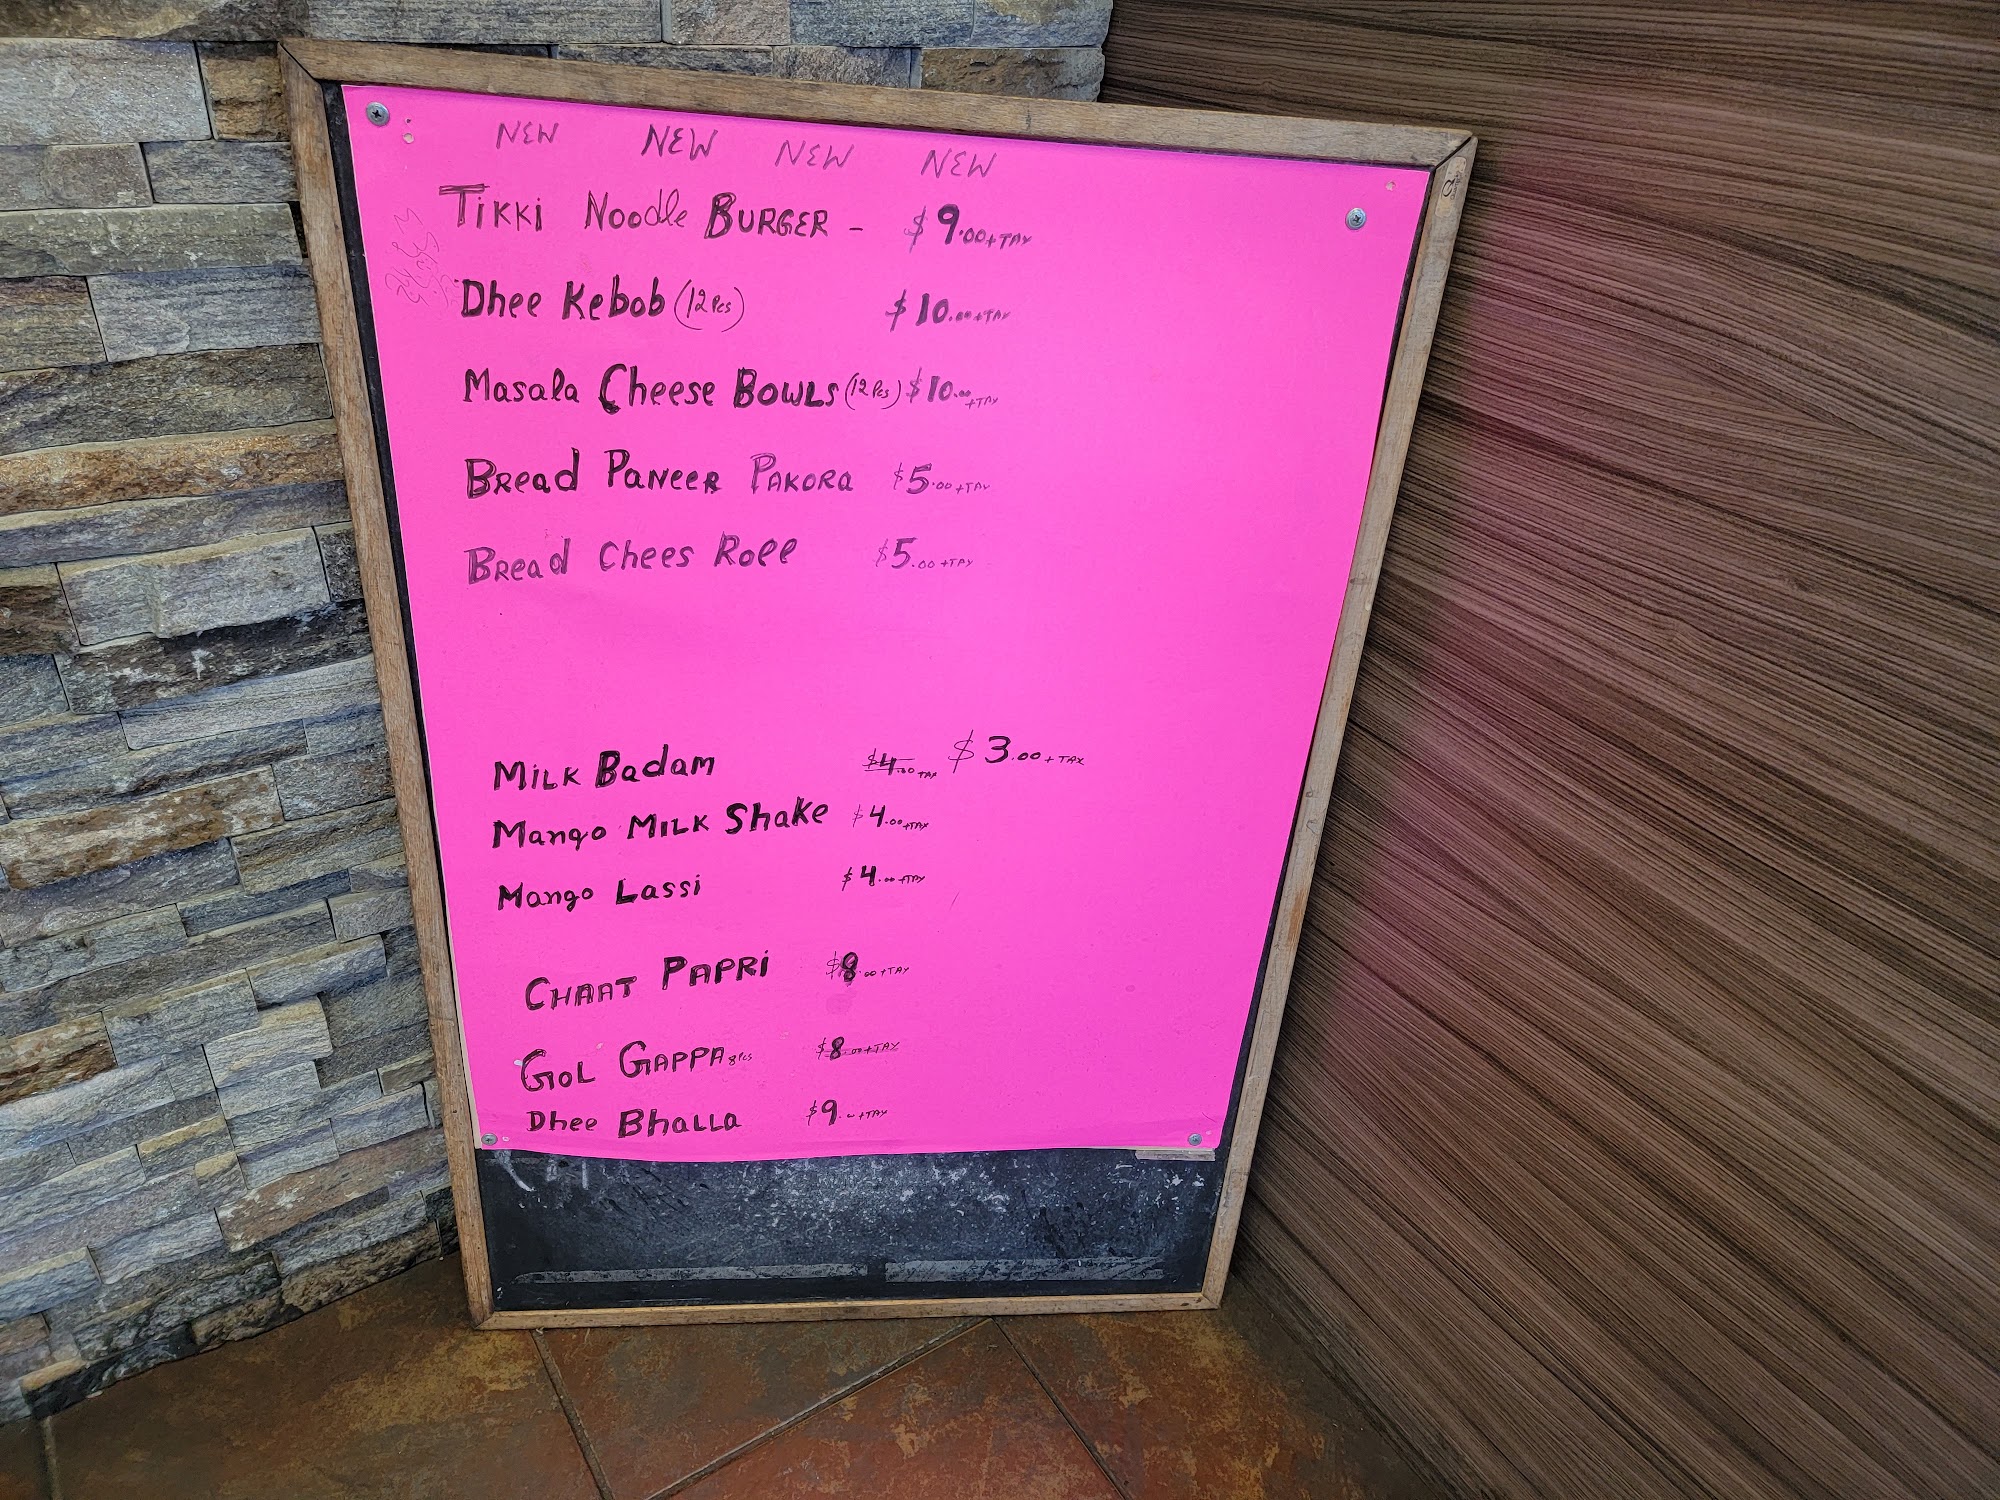 NEW NEW NEW NEW
TIKKI Noodle BURGER - $9.00+TAX
Dhee Kebob (12 Pcs) $10.00+TAX
Masala Cheese BOWLS (12 Pcs) $10.00+TAX
Bread PaNeeR PAKORA $5.00+TAX
Bread Chees Roll $5.00+TAX
MILK Badam $4.00 TAX $3.00+TAX
Mango MILK Shake $4.00+TAX
Mango Lassi $4.00+TAX
CHAAT PAPRI $8.00+TAX
GOL GAPPA 8 Pcs $8.00+TAX
Dhee BhaLLa $9.00+TAX